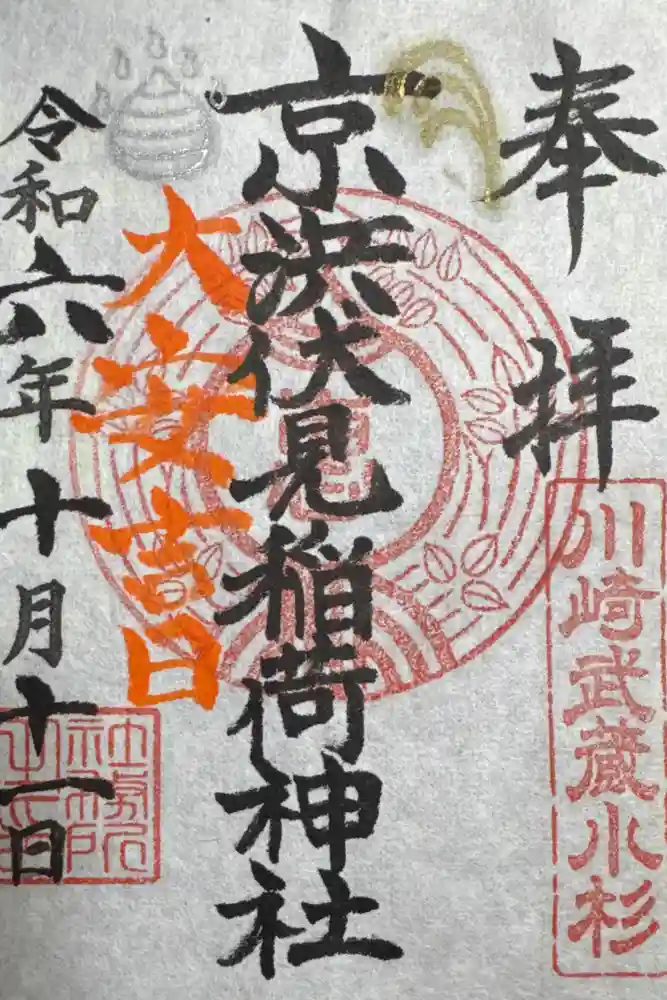 奉拝
川崎武蔵小杉
京浜伏見稲荷神社
大安吉日
令和六年十月十一日